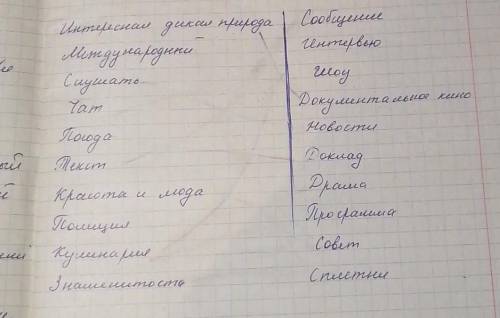 Интересная дикая природа
Международный
Слушать
Чат
Погода
Текст
Красота и мода
Полиция
Кулинария
Знаменитоста
Сообщение
Интервью
Шоу
Документальное кино
Новости
Доклад
Драма
Программа
Совет
Сплетни